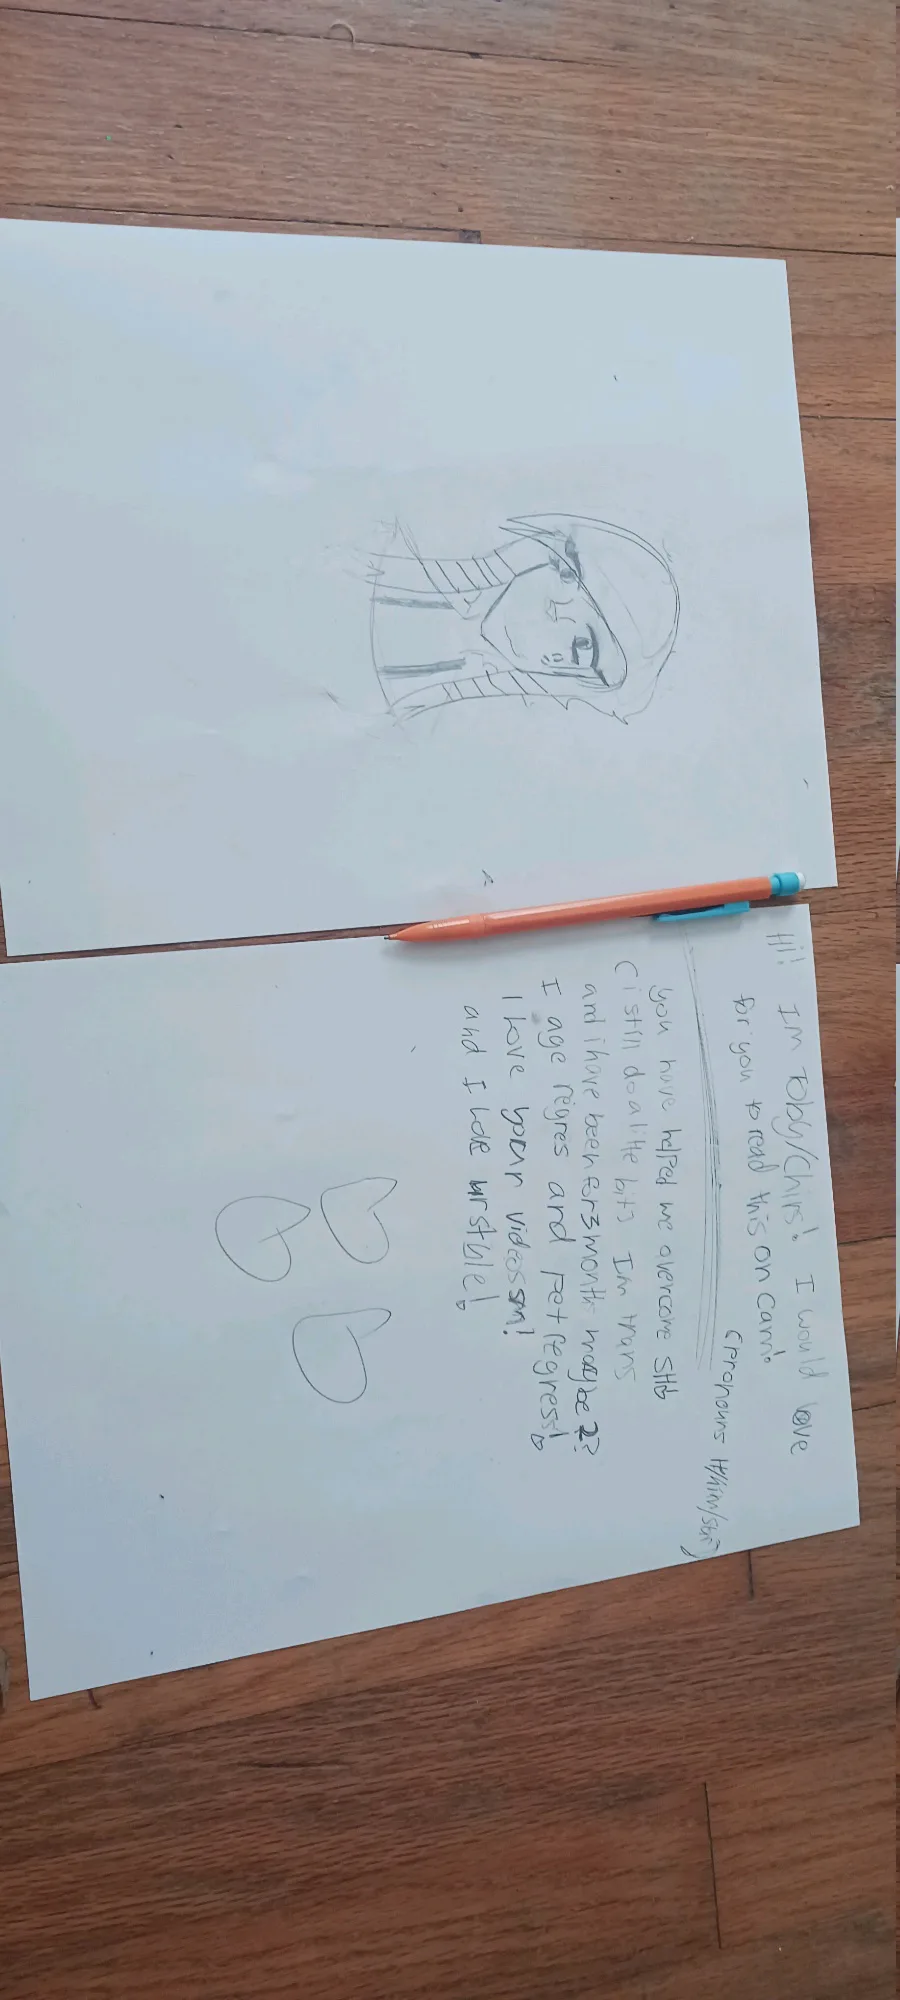 Hi! Im Toby/Chips! I would love
for you to read this on cam!
(Pronouns It/him/
you have helped me overcome SH
(i still do a litle bit) Im trans
and i have been for 3 month maybe 2?
I age regres and pet regress!
I love your videos sm!
and I love ur style!